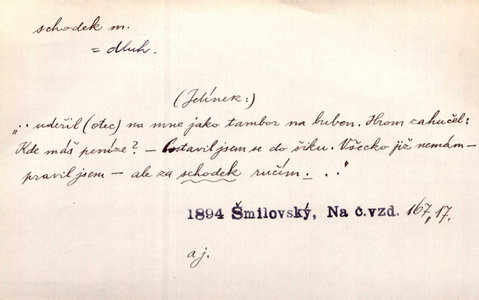 schodek m.
= dluh.
(Jelínek:)
„.. udeřil (otec) na mne jako tambor na buben. Hrom zahučel:
Kde máš peníze? – postavil jsem se do šiku. Všecko již nemám –
pravil jsem – ale za schodek ručím. . .."
1894 Šmilovský, Na č.vzd. 167,17.
aj.